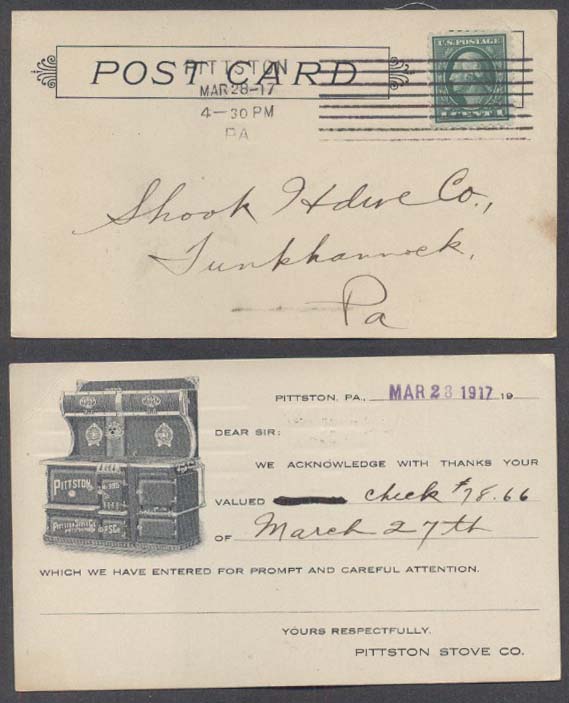 POST CARD
PITTSTON
MAR 28-17
4-30 PM
PA
U.S. POSTAGE
1 CENT 1
Shook Hdwe Co.,
Tunkhannock,
Pa
PITTSTON, PA., MAR 28 1917 19
DEAR SIR:
WE ACKNOWLEDGE WITH THANKS YOUR
VALUED check #78.66
OF March 27th
WHICH WE HAVE ENTERED FOR PROMPT AND CAREFUL ATTENTION.
YOURS RESPECTFULLY.
PITTSTON STOVE CO.
PITTSTON